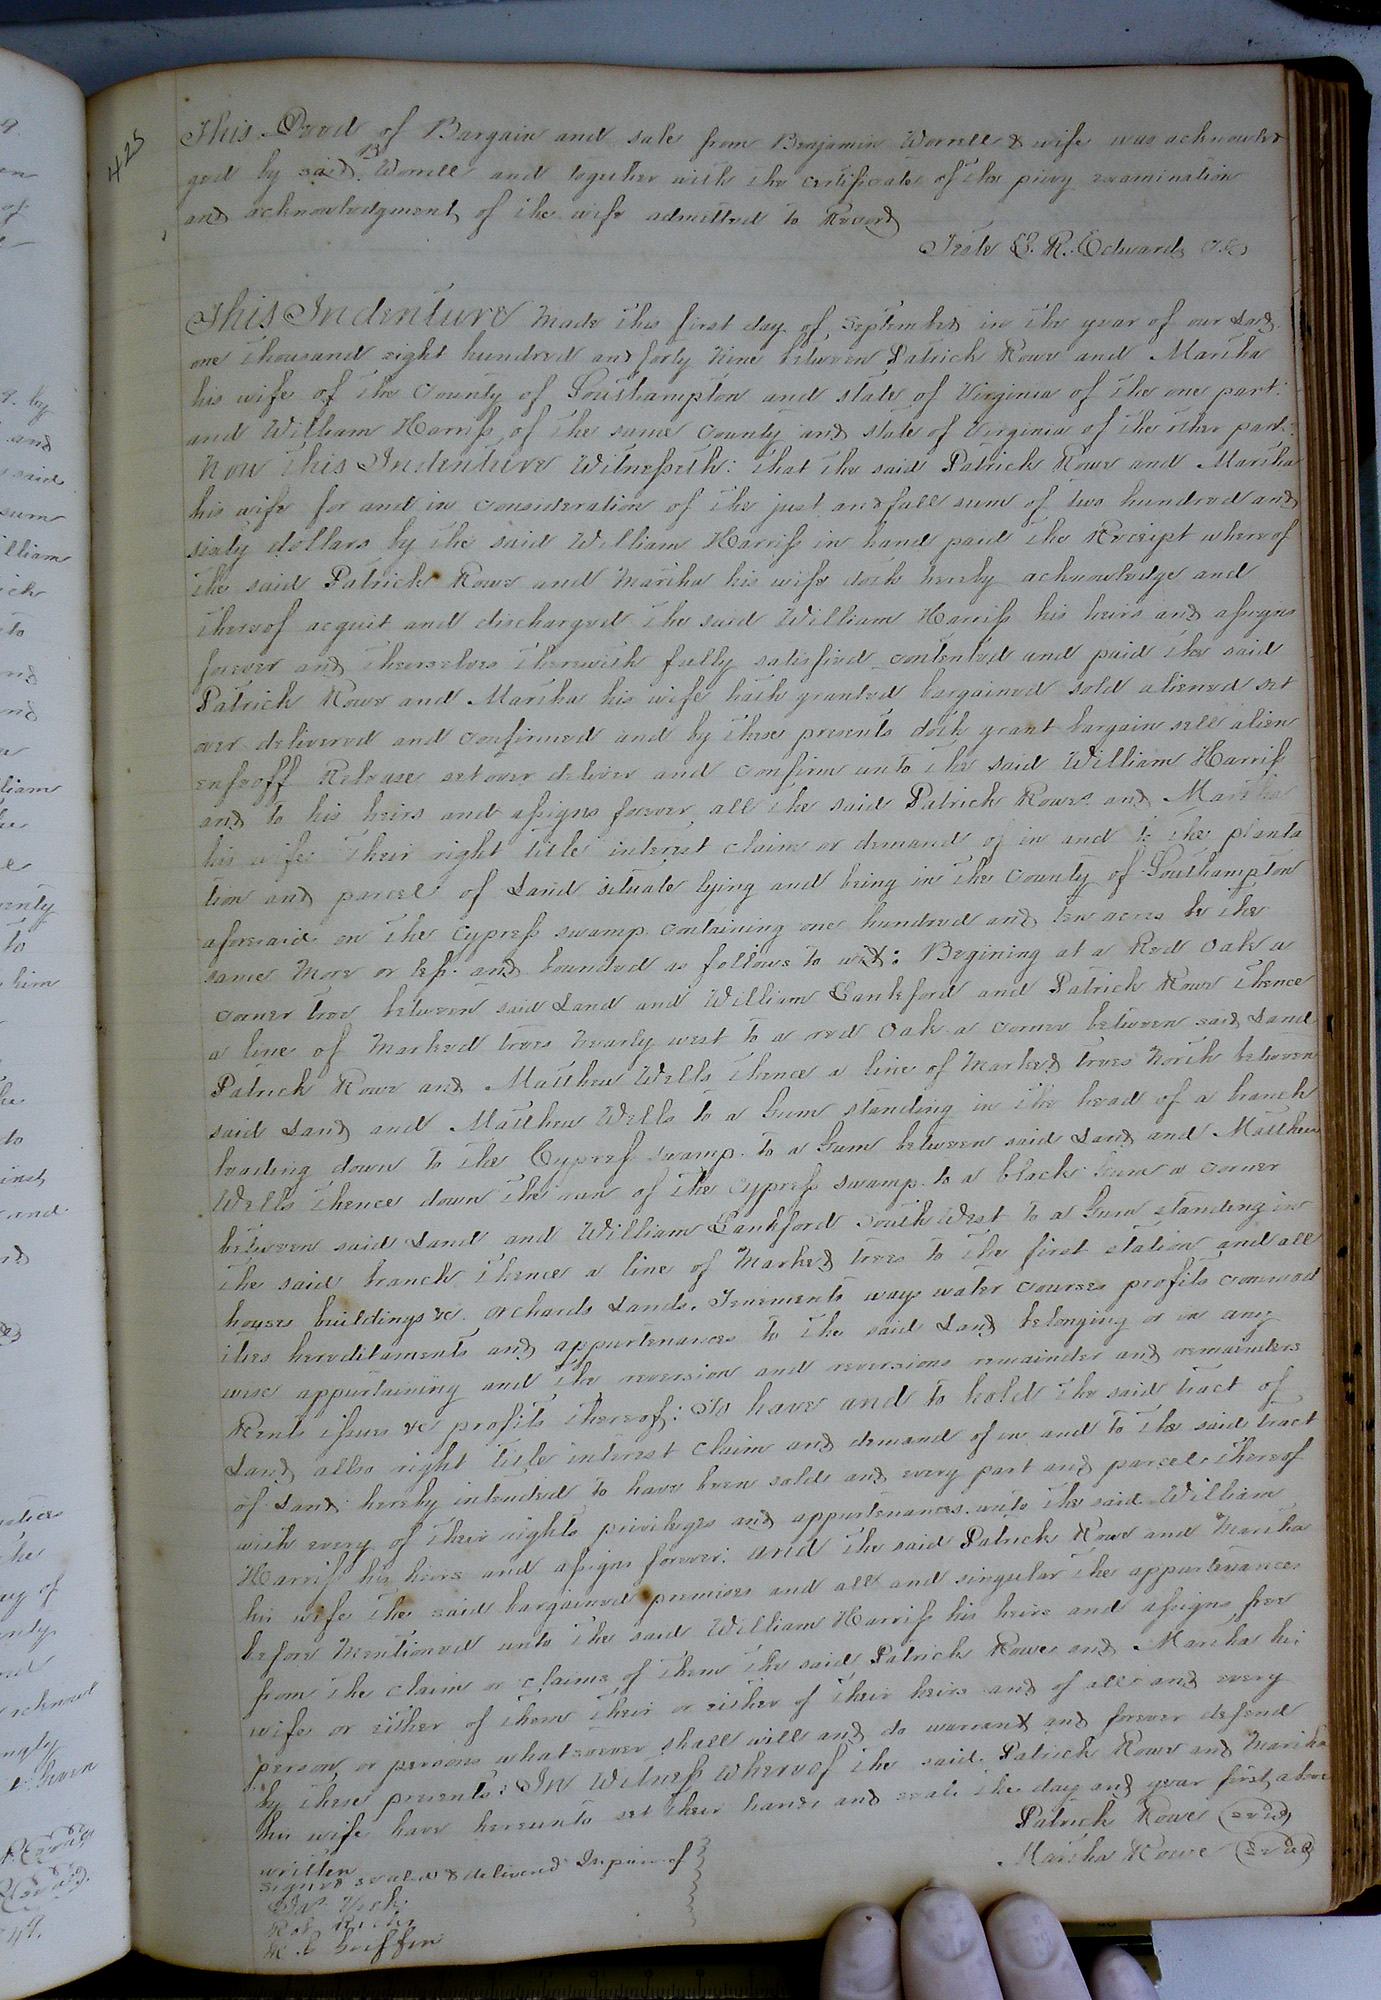 425
This Deed of Bargain and sale from Benjamin Worrell & wife was acknowled
ged by said B Worrell and together with the certificate of the privy examination
and acknowledgment of the wife admitted to Record
Teste L. R. Edwards
This Indenture Made this first day of September in the year of our Lord
one thousand eight hundred and forty Nine between Patrick Rowe and Martha
his wife of the County of Southampton and state of Virginia of the one part:
and William Harriss of the same County and state of Virginia of the other part:
Now This Indenture Witnesseth: that the said Patrick Rowe and Martha
his wife for and in consideration of the just and full sum of two hundred and
sixty dollars by the said William Harriss in hand paid the Receipt whereof
the said Patrick Rowe and Martha his wife doth hereby acknowledge and
thereof acquit and discharged the said William Harriss his heirs and assigns
forever and themselves therewith fully satisfied contented and paid the said
Patrick Rowe and Martha his wife hath granted bargained sold aliened set
over delivered and confirmed and by these presents doth grant bargain sell alien
enfeoff Release set over deliver and confirm unto the said William Harriss
and to his heirs and assigns forever all the said Patrick Rowe and Martha
his wife their right title interest claim or demand of in and to the planta
tion and parcel of Land situate lying and being in the County of Southampton
aforesaid on the Cypress swamp containing one hundred and ten acres be the
same More or less. and bounded as follows to wit: Begining at a Red Oak a
corner tree between said Land and William Lankford and Patrick Rowe thence
a line of Marked trees Nearly west to a red Oak a corner between said Land
Patrick Rowe and Matthew Wells thence a line of Marked trees North between
said Land and Matthew Wells to a Gum standing in the head of a branch
leading down to the Cypress swamp to a Gum between said Land and Matthew
Wells thence down the run of the Cypress swamp to a black Gum a corner
between said Land and William Lankford South West to a Gum standing in
the said branch thence a line of Marked trees to the first station and all
houses buildings &c. orchards Lands. Tenements ways water courses profits commod
ities hereditaments and appurtenances to the said Land belonging or in any
wise appurtaining and the reversion and reversions remainder and remainders
Rents issues & profits thereof: To have and to hold the said tract of
Land allso right title interest claim and demand of in and to the said tract
of Land hereby intended to have been sold and every part and parcel thereof
with every of their rights privileges and appurtenances unto the said William
Harriss his heirs and assigns forever: and the said Patrick Rowe and Martha
his wife the said bargained premises and all and singular the appurtenances
before Mentioned unto the said William Harriss his heirs and assigns free
from the claim or claims of them the said Patrick Rowe and Martha his
wife or either of them their or either of their heirs and of all and every
person or persons whatsoever shall will and do warrant and forever defend
by these presents: In Witness whereof the said Patrick Rowe and Martha
his wife have hereunto set their hands and seals the day and year first above
written
Patrick Rowe (seal)
Martha Rowe (seal)
signed sealed & delivered In pres. of
Griffin